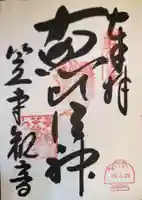 奉拝
恵比須神
笠寺観音